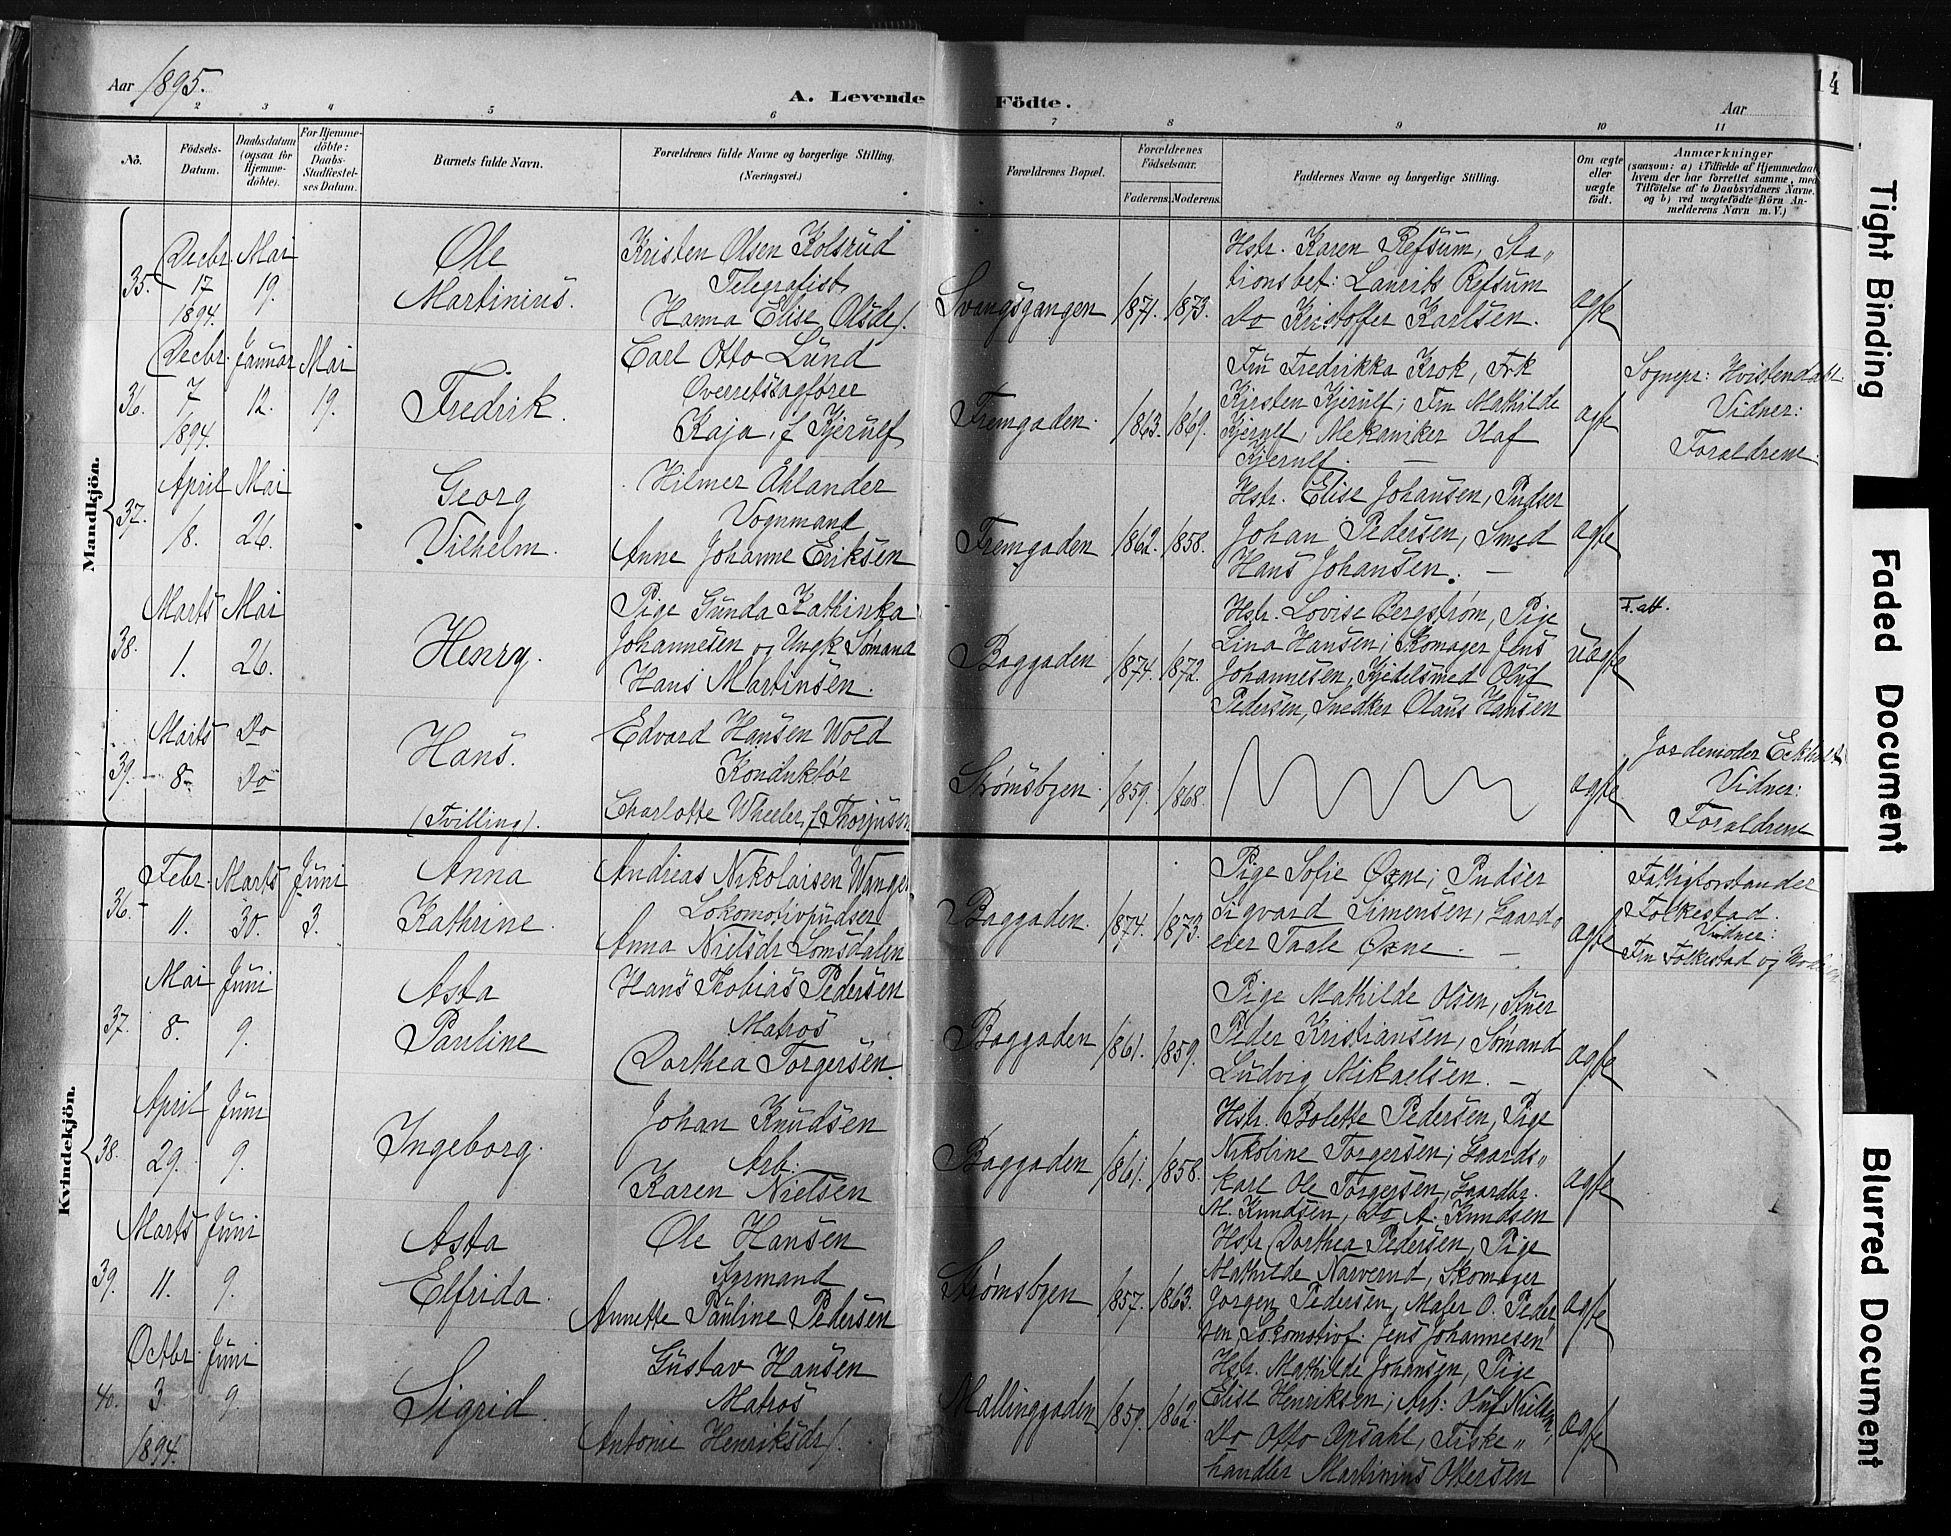 Aar 1895.
A. Levende Födte.
Aar
14
2 3 4 5 6 7 8 9 10 11
No.
Födsels-Datum.
Daabsdatum (ogsaa for Hjemmedöbte).
For Hjemmedöbte: Daabs-Stadfæstelses Datum.
Barnets fulde Navn.
Forældrenes fulde Navne og borgerlige Stilling. (Næringsvei.)
Forældrenes Bopæl.
Forældrenes Födselsaar.
Faderens. Moderens.
Faddernes Navne og borgerlige Stilling.
Om ægte eller uægte födt.
Anmærkninger
(saasom: a) i Tilfælde af Hjemmedaab hvem der har forrettet samme, med Tilföielse af to Daabsvidners Navne, og b) ved uægtefödte Börn Anmelderens Navn m. V.)
Mandkjön.
35.
Decbr. 17 1894.
Mai 19.
Ole
Martinius.
Kristen Olsen Kolsrud
Telegrafist
Hanna Elise Olsdr.
Svangsgangen
1871. 1873.
Hstr. Karen Refsum, Sta„
tionsbet: Laurits Refsum
Do Kristoffer Karlsen.
ægte
36.
Decbr. 7 1894.
Januar 12.
Mai 19.
Fredrik.
Carl Otto Lund
Overretssagfører
Kaja, f Kjerulf
Fremgaden.
1863. 1869.
Fru Fredrikka Krok, Frk
Kirsten Kjerulf; Fru Mathilde
Kjerulf, Mekaniker Olaf
Kjerulf. —
ægte
Sognepr: Hvistendahl
Vidner:
Forældrene
37.
April 18.
Mai 26.
Georg
Vilhelm.
Hilmer Åhlander
Vognmand
Anne Johanne Eriksen
Fremgaden
1862. 1858.
Hstr. Elise Johansen, Pudser
Johan Pedersen, Smed
Hans Johansen. —
ægte
38.
Marts 1.
Mai 26.
Henry.
Pige Gunda Kathinka
Johannesen og Ungk Sømand
Hans Martinsen.
Baggaden
1874. 1872.
Hstr. Lovise Bergstrøm, Pige
Lina Hansen; Skomager Jens
Johannesen, Kjedelsmed Oluf
Pedersen, Snedker Olaus Hansen
uægte
F. att.
39.
Marts 8
Do Do
Hans.
(Tvilling).
Edvard Hansen Wold
Konduktør
Charlotte Wheeler, f Thorjusen
Strømsbyen.
1859. 1868.
ægte
Jordemoder Eckholt
Vidner:
Forældrene
Kvindekjön.
36.
Febr. 11.
Marts 30.
Juni 3.
Anna
Kathrine.
Andreas Nikolaisen Wangen
Lokomotivpudser
Anna Nielsdr Lomsdalen
Baggaden.
1874. 1873.
Pige Sofie Øxne; Pudser
Sigvard Simensen, Gaard„
eier Taale Øxne. —
ægte
Fattigforstander
Folkestad.
Vidner:
Fru Folkestad og Moderen
37.
Mai 8.
Juni 9.
Asta
Pauline
Hans Thobias Pedersen
Matros
Dorthea Torgersen.
Baggaden
1861. 1859.
Pige Mathilde Olsen, Stuer
Peder Kristiansen, Sømand
Ludvig Mikaelsen. —
ægte
38.
April 29.
Juni 9.
Ingeborg.
Johan Knudsen
Arb:
Karen Nielsen
Baggaden
1861. 1858.
Hstr. Bolette Pedersen, Pige
Nikoline Torgersen; Gaards„
karl Ole Torgersen, Gaardbr.
M. Knudsen, Do A. Knudsen
ægte
39.
Marts 11.
Juni 9.
Asta
Elfrida.
Ole Hansen
Agrmand
Annette Pauline Pedersen
Strømsbyen
1857. 1863.
Hstr Dorthea Pedersen, Pige
Mathilde Narverud, Skomager
Jørgen Pedersen, Maler O. Peder
sen, Lokomotivf. Jens Johannesen
ægte
40.
Octbr 3 1894.
Juni 9
Sigrid.
Gustav Hansen
Matros
Antonie Henriksdr.
Mallinggaden
1859. 1862.
Hstr. Mathilde Johansen, Pige
Elise Henriksen; Arb: Oluf Nielsen,
Do Otto Opsahl, Fiske„
handler Martinius Ottersen
ægte
Tight Binding
Faded Document
Blurred Document